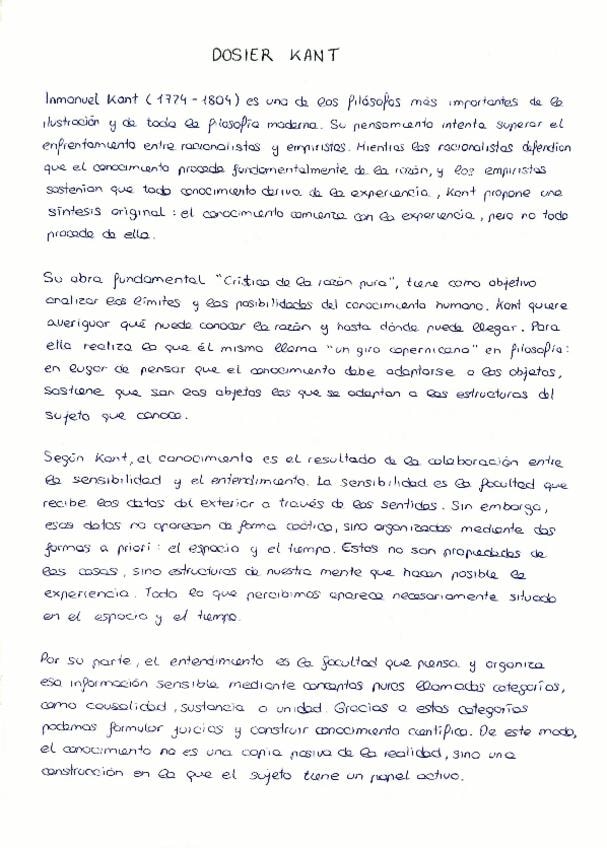 DOSIER KANT
Inmanuel Kant (1774-1804) es uno de los filósofos más importantes de la
ilustración y de toda la filosofía moderna. Su pensamiento intenta superar el
enfrentamiento entre racionalistas y empiristas. Mientras los racionalistas defendían
que el conocimiento procede fundamentalmente de la razón, y los empiristas
sostenían que todo conocimiento deriva de la experiencia, Kant propone una
síntesis original: el conocimiento comienza con la experiencia, pero no todo
procede de ella.
Su obra fundamental "Crítica de la razón pura", tiene como objetivo
analizar los límites y las posibilidades del conocimiento humano. Kant quiere
averiguar qué puede conocer la razón y hasta dónde puede llegar. Para
ello realiza lo que él mismo llama "un giro copernicano" en filosofía:
en lugar de pensar que el conocimiento debe adaptarse a los objetos,
sostiene que son los objetos los que se adaptan a las estructuras del
sujeto que conoce.
Según Kant, el conocimiento es el resultado de la colaboración entre
la sensibilidad y el entendimiento. La sensibilidad es la facultad que
recibe los datos del exterior a través de los sentidos. Sin embargo,
esos datos no aparecen de forma caótica, sino organizados mediante dos
formas a priori: el espacio y el tiempo. Estos no son propiedades de
las cosas, sino estructuras de nuestra mente que hacen posible la
experiencia. Todo lo que percibimos aparece necesariamente situado
en el espacio y el tiempo.
Por su parte, el entendimiento es la facultad que piensa y organiza
esa información sensible mediante conceptos puros llamados categorías,
como causalidad, sustancia o unidad. Gracias a estas categorías
podemos formular juicios y construir conocimiento científico. De este modo,
el conocimiento no es una copia pasiva de la realidad, sino una
construcción en la que el sujeto tiene un papel activo.